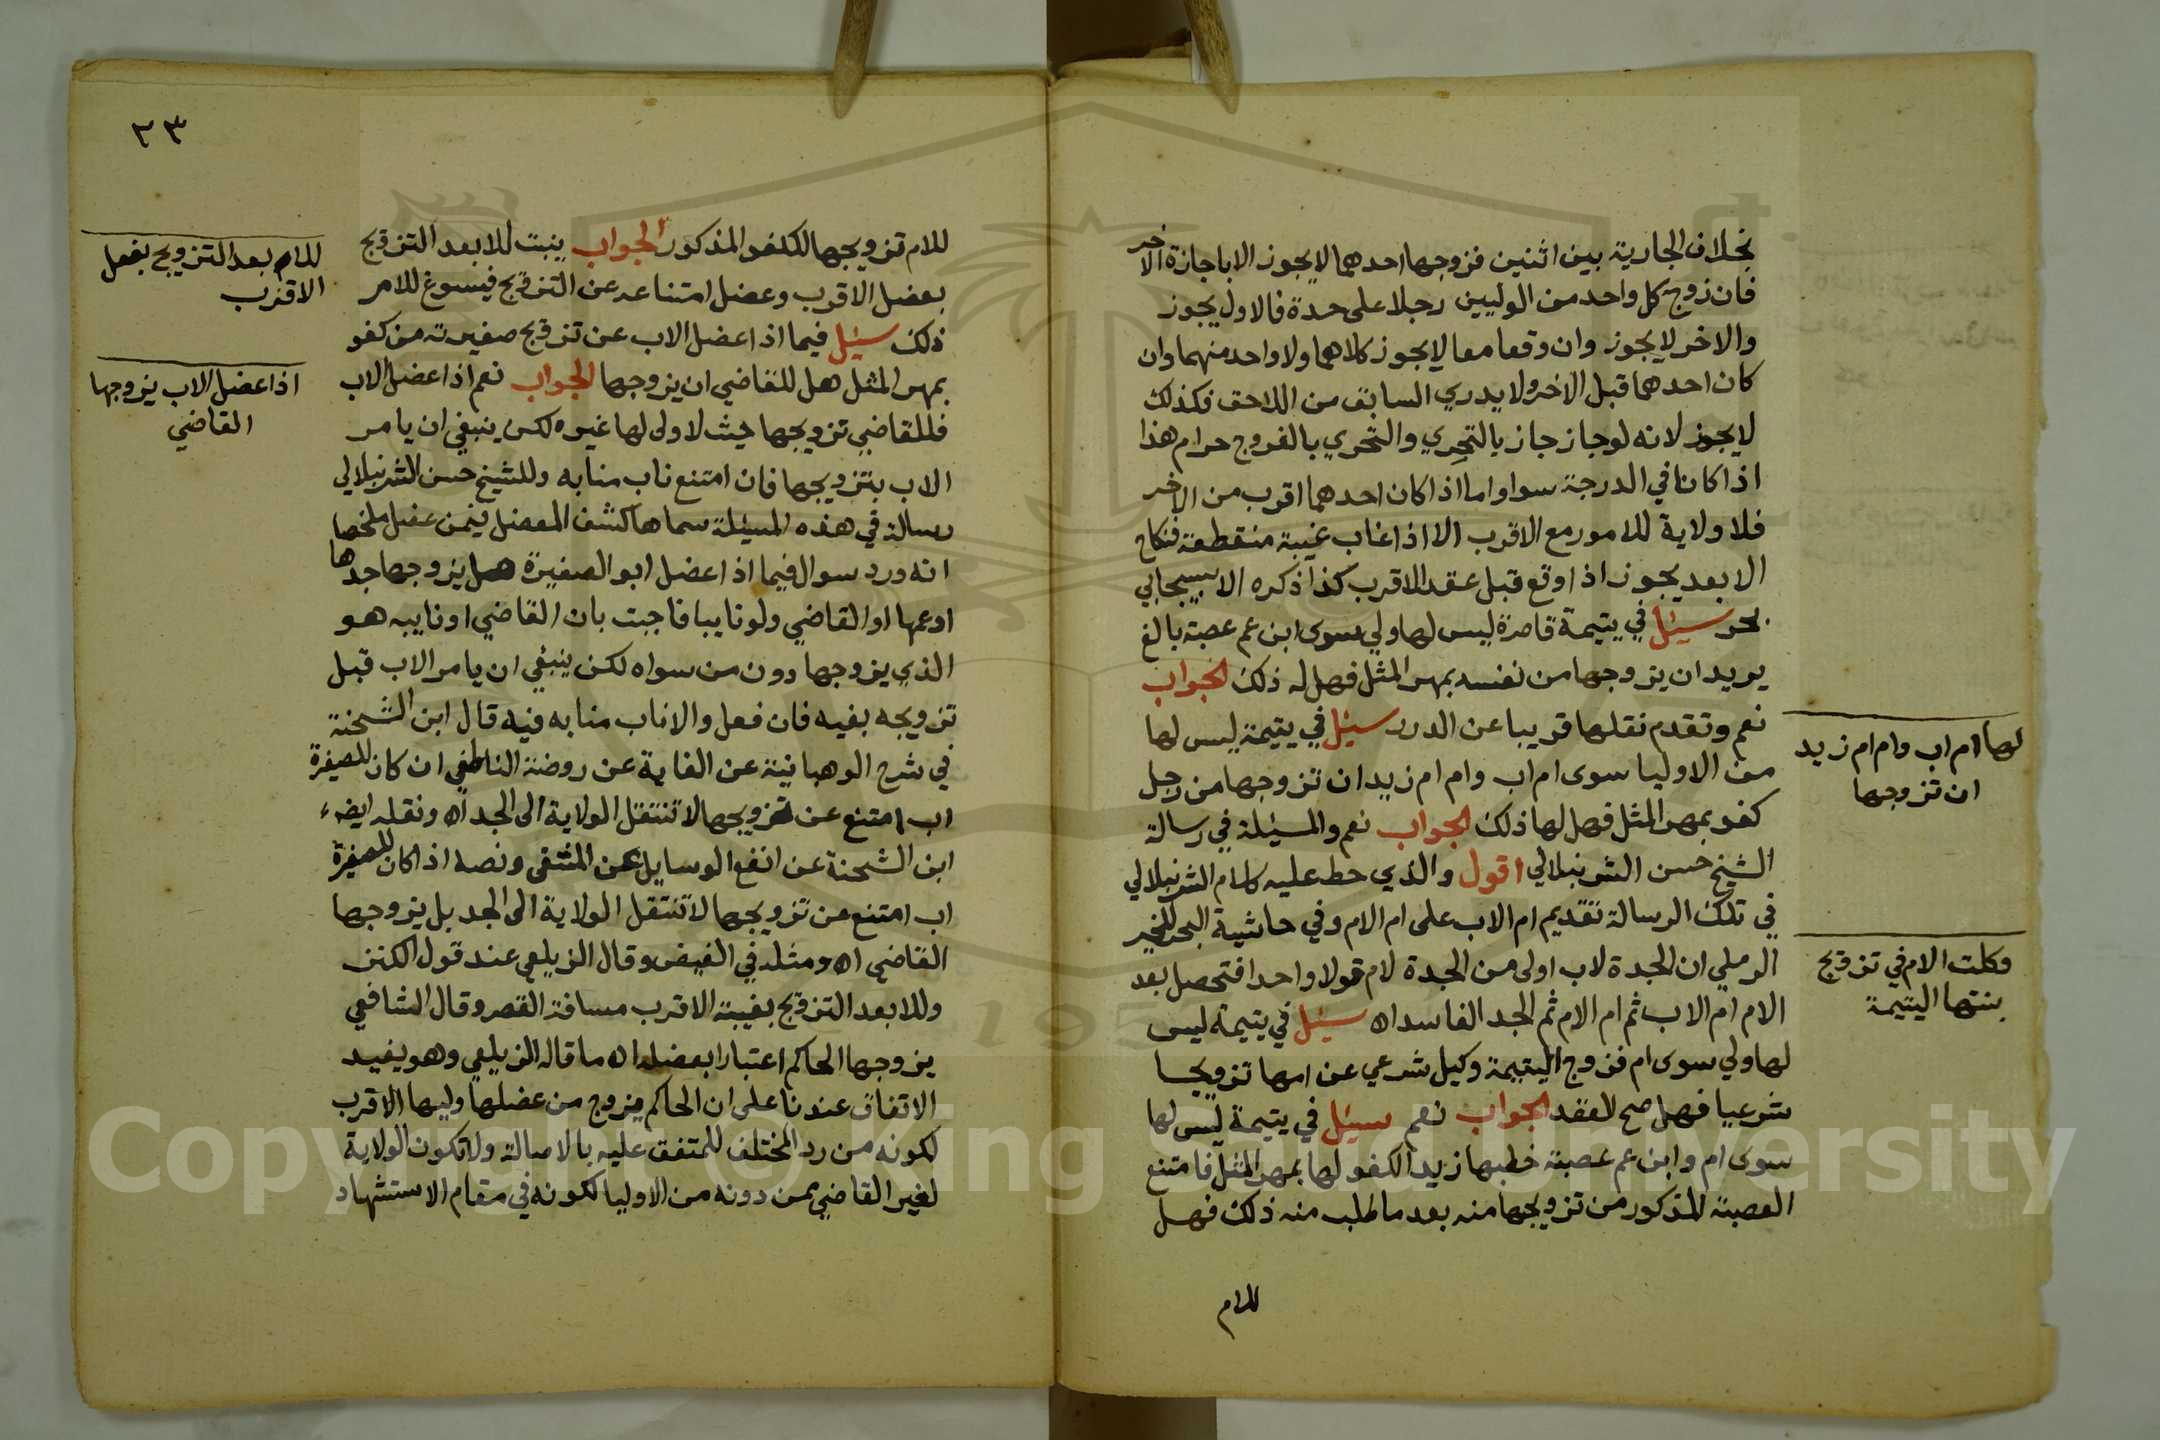 بخلاف الجارية بين اثنين فزوجها احدهما لايجوز الا باجازة الاخر
فان زوج كل واحد من الوليين رجلا على حدة فالاول يجوز
والاخر لايجوز وان وقعا معا لايجوز كلاهما ولا واحد منهما وان
كان احدهما قبل الاخر ولا يدري السابق من اللاحق فكذلك
لايجوز لانه لو جاز جاز بالتحري والتحري بالفروج حرام هذا
اذا كانا في الدرجة سوا واما اذا كان احدهما اقرب من الاخر
فلا ولاية للامور مع الاقرب الا اذا غاب غيبة منقطعة فنكاح
الابعد يجوز اذا وقع قبل عقد الاقرب كذا ذكره الاسبيجابي
بحر سئيل في يتيمة قاصرة ليس لها ولي سوى ابن عم عصبة بالغ
يريد ان يزوجها من نفسه بمهر المثل فهل له ذلك الجواب
نعم وتقدم نقلها قريبا عن الدرر سئيل في يتيمة ليس لها
من الاوليا سوى ام اب وام ام زيد ان تزوجها من رجل
كفو بمهر المثل فهل لها ذلك الجواب نعم والمسئلة في رسالة
الشيخ حسن الشرنبلالي اقول والذي حط عليه كلام الشرنبلالي
في تلك الرسالة تقديم ام الاب على ام الام وفي حاشية البحر للخير
الرملي ان الجدة لاب اولى من الجدة لام قولا واحدا فتحصل بعد
الام ام الاب ثم ام الام ثم الجد الفاسد اه سئيل في يتيمة ليس
لها ولي سوى ام فزوج اليتيمة وكيل شرعي عن امها تزويجا
شرعيا فهل صح العقد الجواب نعم سئيل في يتيمة ليس لها
سوى ام وابن عم عصبة خطبها زيد الكفو لها بمهر المثل فامتنع
العصبة المذكور من تزويجها منه بعد ما طلب منه ذلك فهل
للام
لها ام اب وام ام زيد
ان تزوجها
وكلت الام في تزويج
بنتها اليتيمة
٣٣
للام تزويجها للكفو المذكور الجواب يثبت للابعد التزويج
بعضل الاقرب وعضل امتناعه عن التزويج فيسوغ للام
ذلك سئيل فيما اذا عضل الاب عن تزويج صغيرته من كفو
بمهر المثل هل للقاضي ان يزوجها الجواب نعم اذا عضل الاب
فللقاضي تزويجها حيث لا ولى لها غيره لكن ينبغي ان يامر
الاب بتزويجها فان امتنع ناب منابه وللشيخ حسن الشرنبلالي
رسالة في هذه المسئلة سماها كشف المعضل فيمن عضل ملخصها
انه ورد سوال فيما اذا عضل ابو الصغيرة هل يزوجها جدها
او عمها او القاضي ولو نايبا فاجبت بان القاضي او نايبه هو
الذي يزوجها دون من سواه لكن ينبغي ان يامر الاب قبل
تزويجه بغيه فان فعل والا ناب منابه فيه قال ابن الشحنة
في شرح الوهبانية عن الغاية عن روضة الناطفي ان كان للصغيرة
اب امتنع عن تزويجها لا تنتقل الولاية الى الجد اه ونقله ايضا
ابن الشحنة عن انفع الوسايل عن المنتقى ونصه اذا كان للصغيرة
اب امتنع من تزويجها لا تنتقل الولاية الى الجد بل يزوجها
القاضي اه ومثله في الفيض وقال الزيلعي عند قول الكنز
وللابعد التزويج بغيبة الاقرب مسافة القصر وقال الشافعي
يزوجها الحاكم اعتبارا بعضله اه ما قاله الزيلعي وهو يفيد
الاتفاق عندنا على ان الحاكم يزوج من عضلها وليها الاقرب
لكونه من رد المختلف للمتفق عليه بالاصالة ولا تكون الولاية
لغير القاضي بمن دونه من الاوليا لكونه في مقام الاستشهاد
للام بعد التزويج بعضل
الاقرب
اذا عضل الاب يزوجها
القاضي
Copyright © King Saud University
195